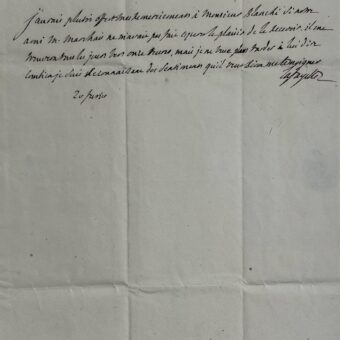 j'aurais plutôt offert mes remerciements à Monsieur Blanchi si notre
ami M. Marchais ne m'avait pas fait espérer le plaisir de le recevoir. il me
trouvera tous les jours vers onze heures, mais je ne veux pas tarder à lui dire
combien je suis reconnaissant des sentiments qu'il veut bien me témoigner
Lafayette